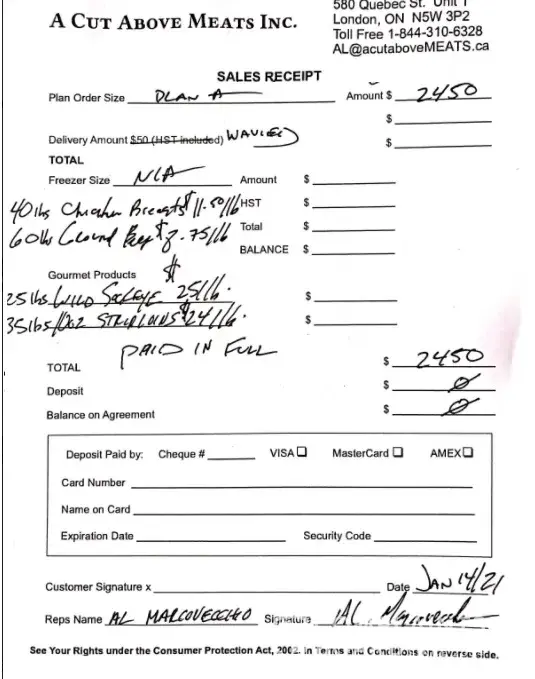 A CUT ABOVE MEATS INC.
580 Quebec St. Unit 1
London, ON N5W 3P2
Toll Free 1-844-310-6328
AL@acutaboveMEATS.ca
SALES RECEIPT
Plan Order Size PLAN A Amount $ 2450
$
Delivery Amount $50 (HST included) WAVIED $
TOTAL
Freezer Size N/A Amount $
40lbs Chicken Breasts $11.50/lb HST $
60lbs Ground Beef $ 7.75/lb Total $
BALANCE $
Gourmet Products $
25 lbs WILD SOCKEYE 25/lb. $
35lbs/10oz STRIPLOINS $24/lb. $
PAID IN FULL
TOTAL $ 2450
Deposit $ 0
Balance on Agreement $ 0
Deposit Paid by: Cheque # VISA MasterCard AMEX
Card Number
Name on Card
Expiration Date Security Code
Customer Signature x Date JAN 14/21
Reps Name AL MARCOVECCHIO Signature Al Marcovecchio
See Your Rights under the Consumer Protection Act, 2002. in Terms and Conditions on reverse side.